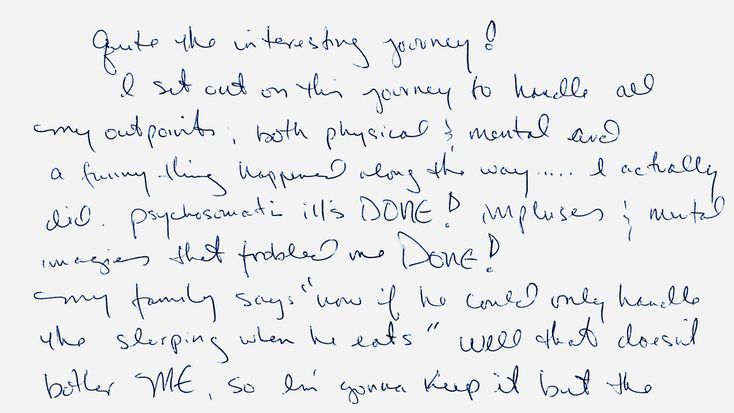 Quite the interesting journey!
I set out on this journey to handle all
my outpoints, both physical & mental and
a funny thing happened along the way..... I actually
did. psychosomatic ill's DONE! impluses & mental
imagies that trobled me DONE!
my family says "now if he could only handle
the slerping when he eats" well that doesn't
bother ME, so I'm gonna keep it but the